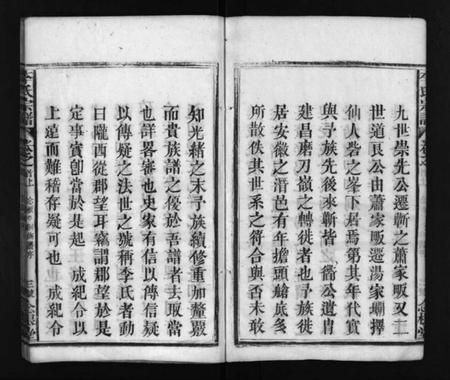 九世崇先公遷蘄之蕭家畈又二
世道艮公由蕭家畈遷湯家壪擇
仙人砦之峯下居焉第其年代實
與予族先後來蘄皆 公遺冑
建昌磨刀 之轉徙者也予族徙
居安徽之潛邑有年擔頭 底多
所散佚其世系之符合與否未敢
知光緒之末予族續修重加釐嚴
而貴族譜之優於吾譜者去取當
也詳畧審也史家有信以傳信疑
以傳疑之法世之號稱李氏者動
曰隴西從郡望耳竊謂郡望於是
定事實卽當於是起 成紀今以
上遠而難稽存疑可也 成紀今
李氏宗譜
卷之首上